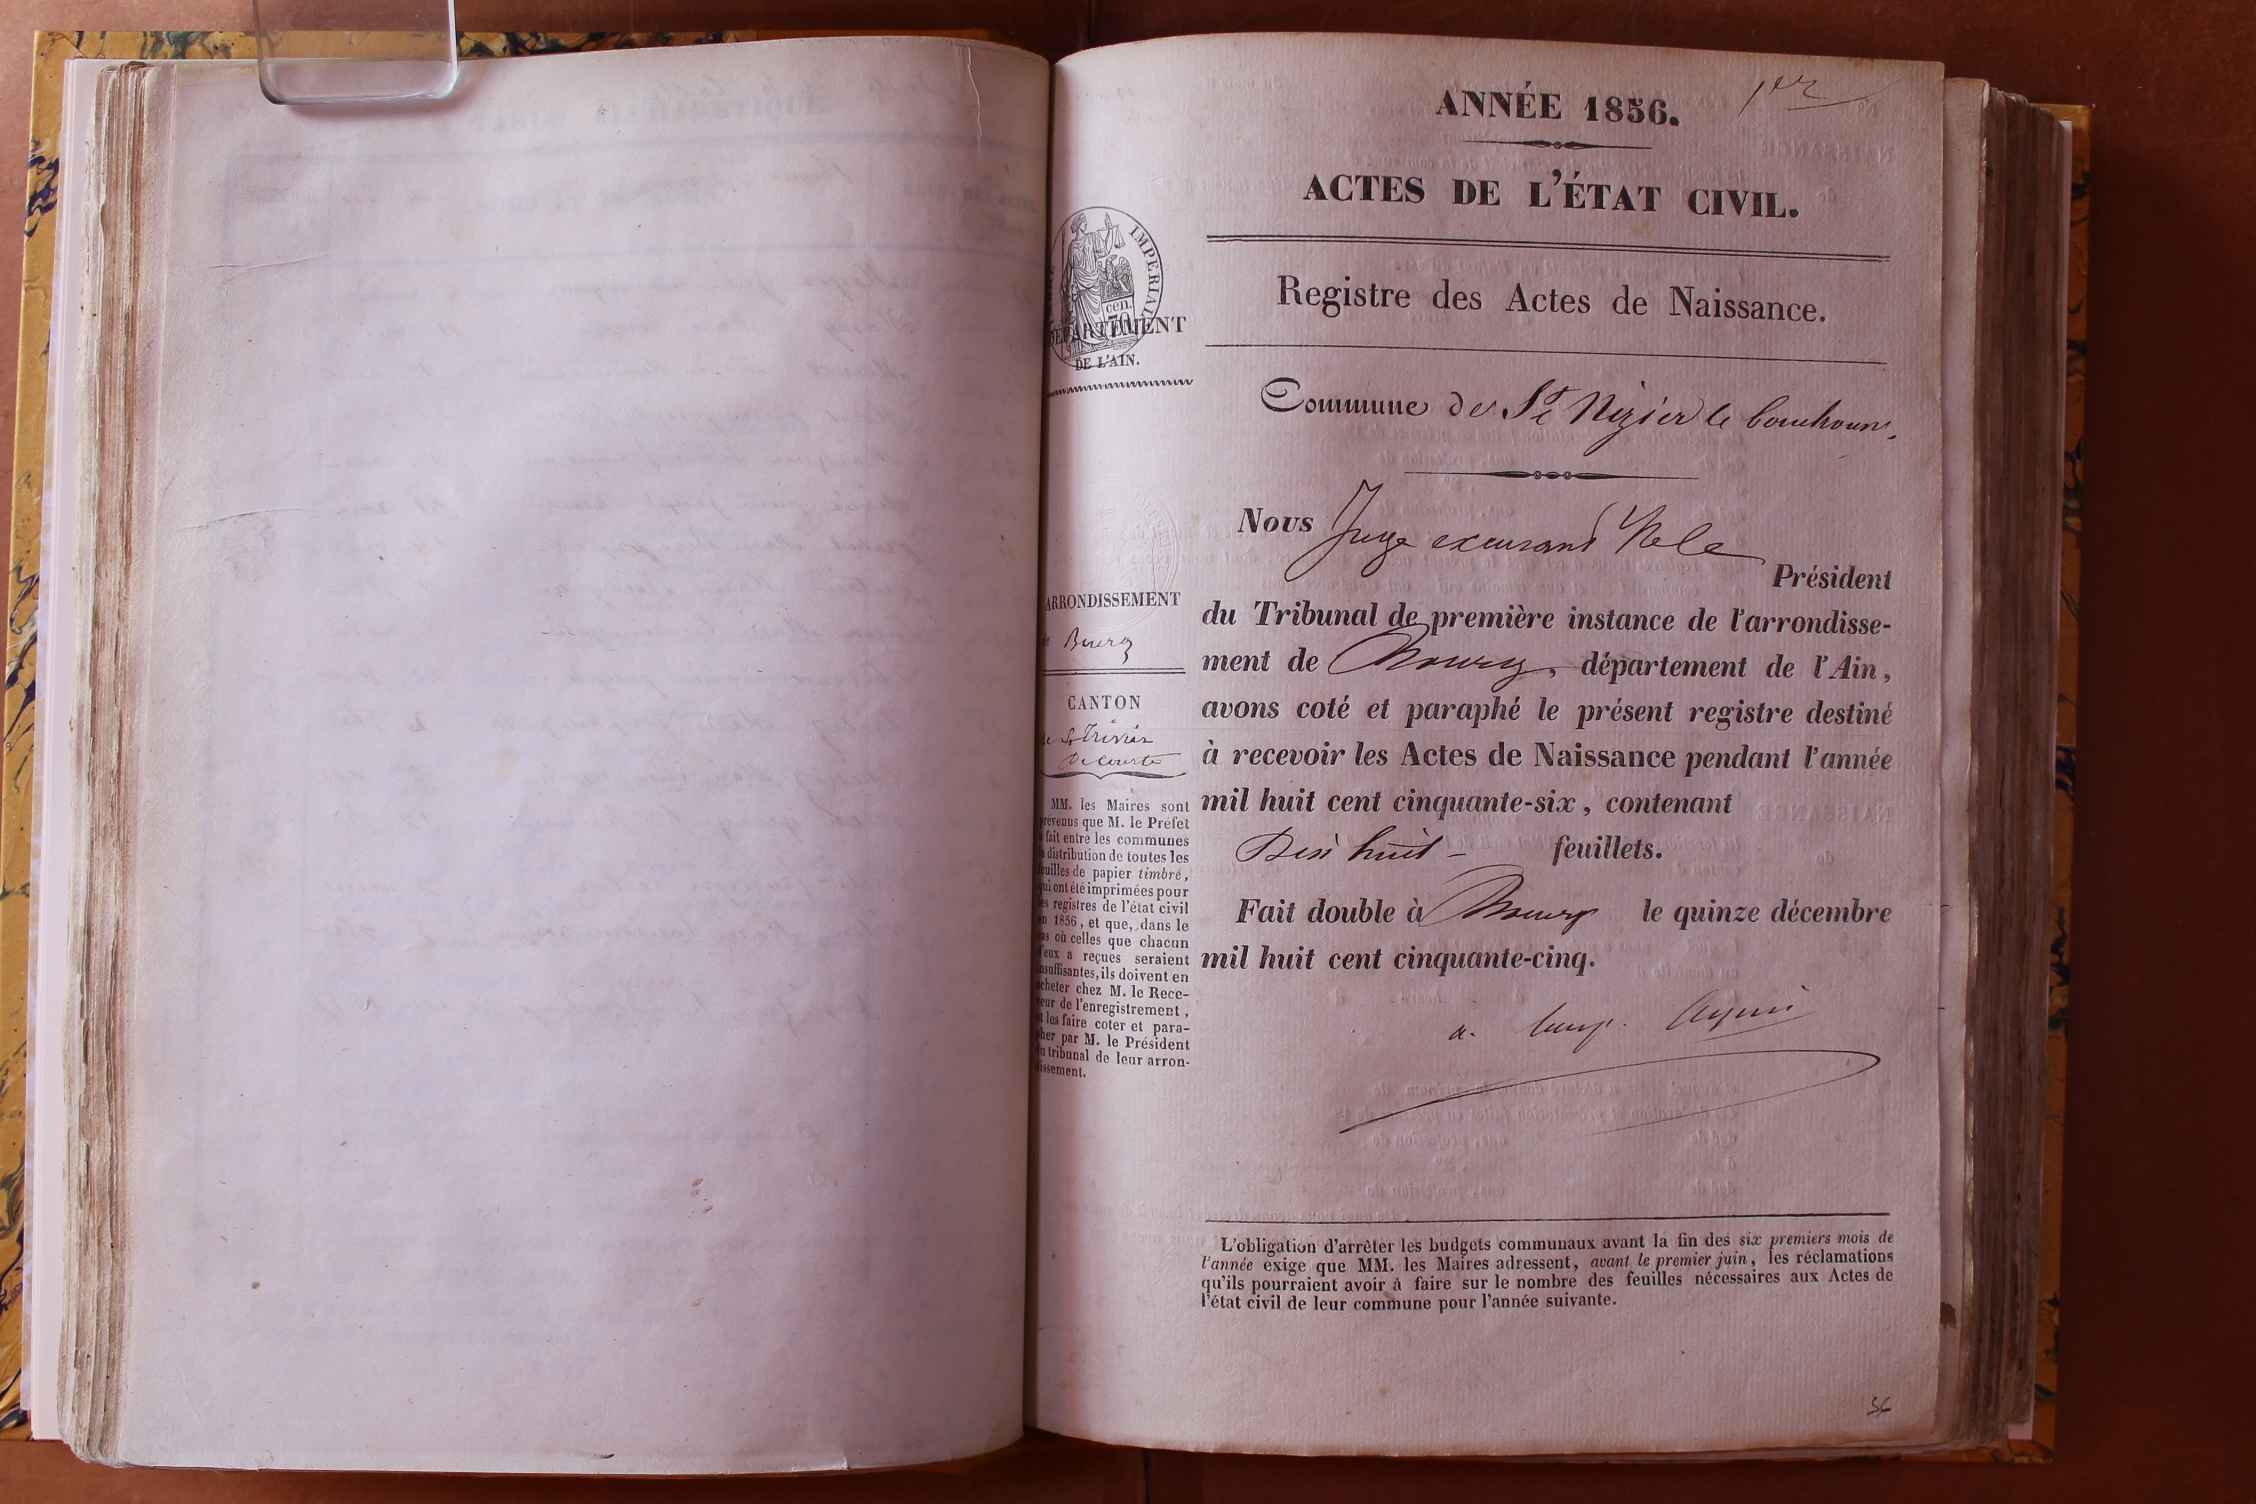 1er
ANNÉE 1856.
ACTES DE L'ÉTAT CIVIL.
Registre des Actes de Naissance.
IMPERIAL
cen.
70
DÉPARTEMENT
DE L'AIN.
ARRONDISSEMENT
de Bourg
CANTON
de St Trivier
de Courtes
MM. les Maires sont
prévenus que M. le Préfet
a fait entre les communes
la distribution de toutes les
feuilles de papier timbré,
qui ont été imprimées pour
les registres de l'état civil
en 1856, et que, dans le
cas où celles que chacun
d'eux a reçues seraient
insuffisantes, ils doivent en
acheter chez M. le Rece-
veur de l'enregistrement,
et les faire coter et para-
pher par M. le Président
du tribunal de leur arron-
dissement.
Commune de St Nizier le bouchoux.
Nous Juge
Président
du Tribunal de première instance de l'arrondisse-
ment de Bourg, département de l'Ain,
avons coté et paraphé le présent registre destiné
à recevoir les Actes de Naissance pendant l'année
mil huit cent cinquante-six, contenant
Dix huit - feuillets.
Fait double à Bourg le quinze décembre
mil huit cent cinquante-cinq.
L'obligation d'arrêter les budgets communaux avant la fin des six premiers mois de
l'année exige que MM. les Maires adressent, avant le premier juin, les réclamations
qu'ils pourraient avoir à faire sur le nombre des feuilles nécessaires aux Actes de
l'état civil de leur commune pour l'année suivante.
56